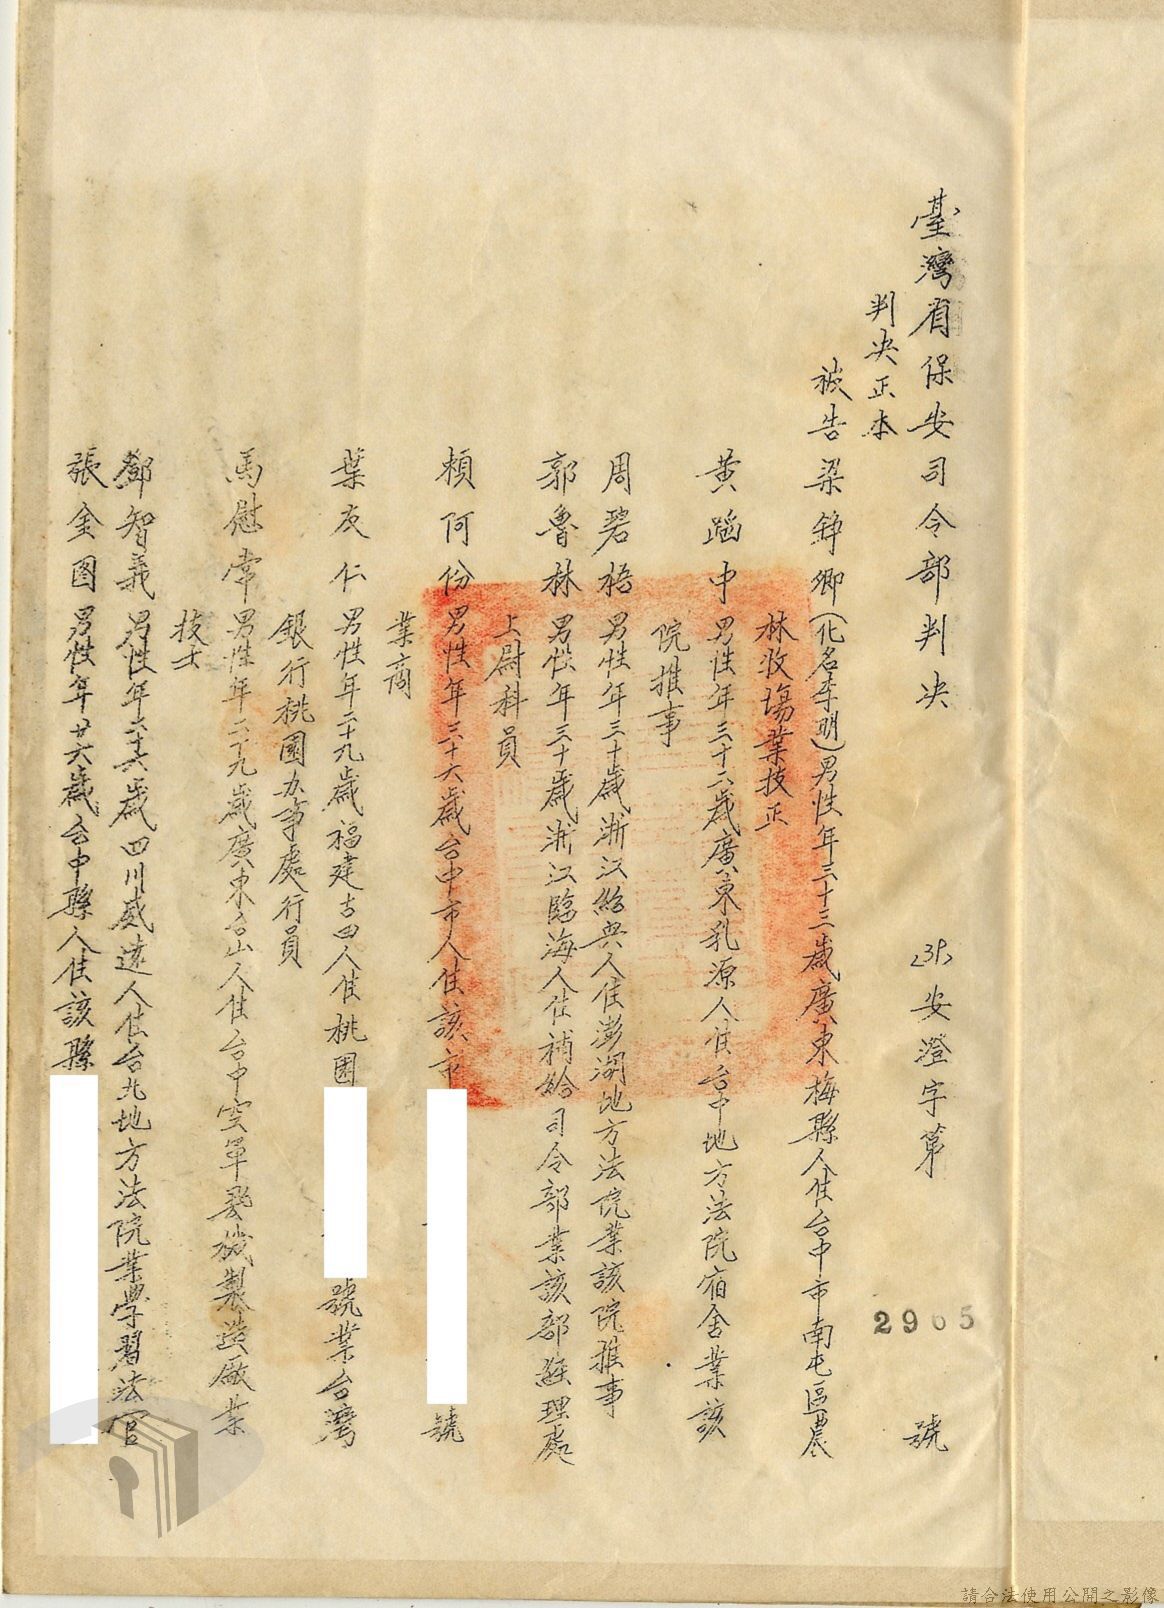 臺灣省保安司令部判決 (39)安澄字第 2965 號
判決正本
被告梁錚卿(化名李明)男性年三十三歲廣東梅縣人住台中市南屯區農
林牧場業技正
黃蹈中男性年三十六歲廣東乳源人住台中地方法院宿舍業該
院推事
周碧梧男性年三十歲浙江紹興人住澎湖地方法院業該院推事
郭魯林男性年三十歲浙江臨海人住補給司令部業該部經理處
上尉科員
賴阿份男性年三十六歲台中市人住該市 號
業商
葉友仁男性年二十九歲福建古田人住桃園 號業台灣
銀行桃園办事處行員
馬慰常男性年二十九歲廣東台山人住台中空軍飛機製造廠業
技士
鄧智義男性年二十六歲四川威遠人住台北地方法院業學習法官
張金國男性年廿六歲台中縣人住該縣
請合法使用公開之影像